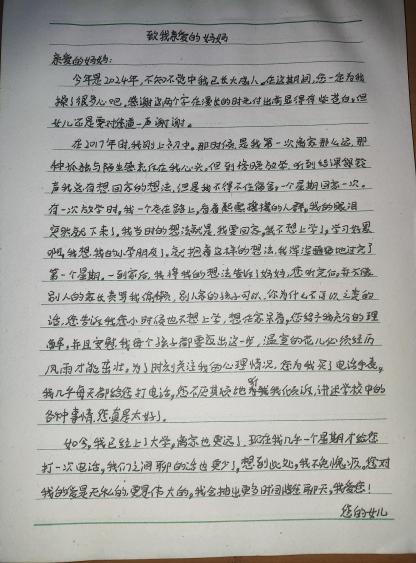 致我亲爱的妈妈
亲爱的妈妈：
今年是2024年，不知不觉中我已长大成人。在这期间，您一定为我
操了很多心吧，感谢这两个字在漫长的时光付出面显得有些苍白，但
女儿还是要对您道一声谢谢。
在2017年时我刚上初中。那时候是我第一次离家那么远，那
种孤独与陌生感充住在我心头。但到傍晚放学，听到结课铃
声我总有想回家的想法，但是我不得不住宿舍，一个星期回家一次。
有一次放学时，我一个走在路上，看着熙熙攘攘的人群，我的眼泪
突然就下来了。我当时的想法就是，我要回家，我不想上学了，学习好累
啊，我想我的小学朋友了。就抱着这样的想法，我浑浑噩噩地过完了
第一个星期。一到家后，我将我的想法告诉了妈妈，您听完后，并未像
别人的家长责骂我，别人家的孩子可以，你为什么不可以之类的
话。您告诉我您小时候也不想上学，想在家呆着，您给予我充分的理
解，并且安慰我每个孩子都要迈出这一步，温室的花儿必须经历
风雨才能茁壮。为了时刻关注我的心理情况，您为我买了电话手表，
我几乎每天都给您打电话，您不厌其烦地听我我倾诉，讲述学校中的
各种事情，您真是太好了。
如今，我已经上了大学，离家也更远了，现在我几乎一个星期才给您
打一次电话，我们之间聊的话也更少了，想到此处，我不免愧疚，您对
我的爱是无私的，更是伟大的，我会抽出更多时间陪您聊天，我爱您！
您的女儿